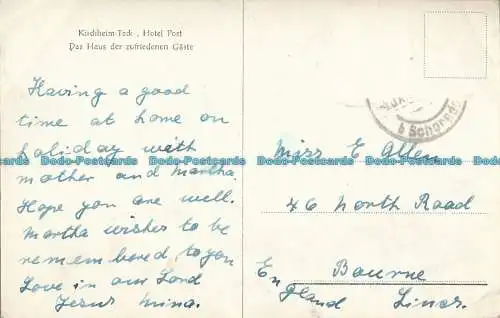 Kirchheim-Teck , Hotel Post
Das Haus der zufriedenen Gäste
Having a good
time at home on
holiday with
mother and Martha.
Hope you are well.
Martha wishes to be
remembered to you
Love in our Lord
Jesus Mina.
b Schorndo
Miss E Allen
46 North Road
Bourne
England Lincs.
Dodo-Postcards Dodo-Postcards Dodo-Postcards Dodo-Postcards Dodo-Postcards